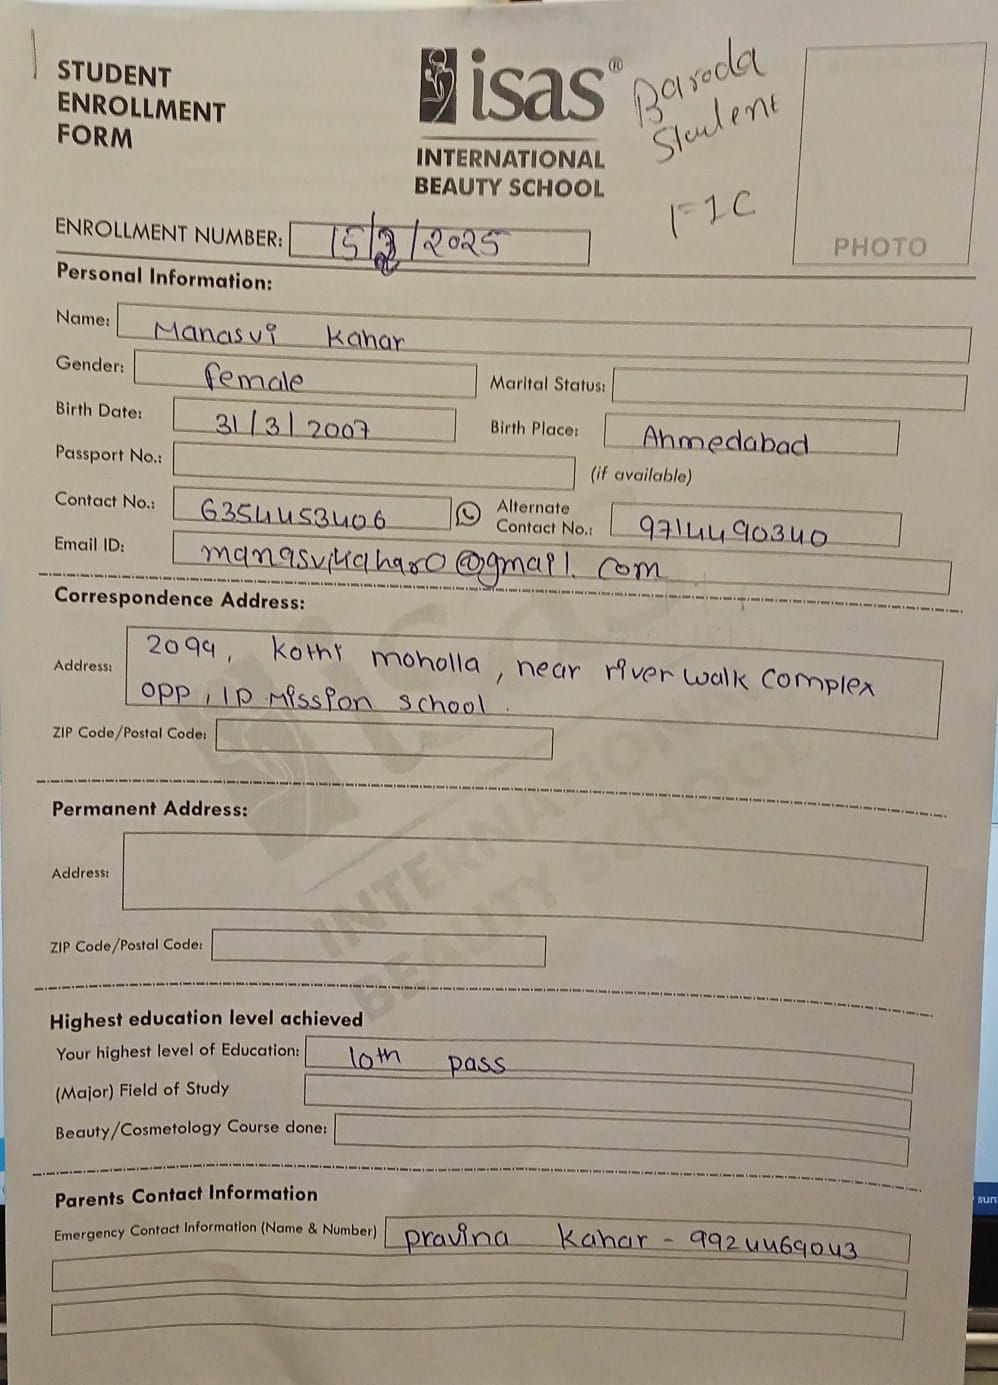 STUDENT
ENROLLMENT
FORM
isas®
INTERNATIONAL
BEAUTY SCHOOL
Baroda
Student
PHOTO
ENROLLMENT NUMBER: 15/2/2025
Personal Information:
Name: Manasvi Kahar
Gender: female
Marital Status:
Birth Date: 31/3/2007
Birth Place: Ahmedabad
Passport No.:
(if available)
Contact No.: 6354453406
Alternate
Contact No.: 9714490340
Email ID: manasvikahar0@gmail.com
Correspondence Address:
Address: 2099, Kothi moholla, near river walk complex
opp, IP Mission school.
ZIP Code/Postal Code:
Permanent Address:
Address:
ZIP Code/Postal Code:
Highest education level achieved
Your highest level of Education: 10th pass
(Major) Field of Study
Beauty/Cosmetology Course done:
Parents Contact Information
Emergency Contact Information (Name & Number) pravina Kahar - 9924469043
isas
INTERNATIONAL
BEAUTY SCHOOL
sun